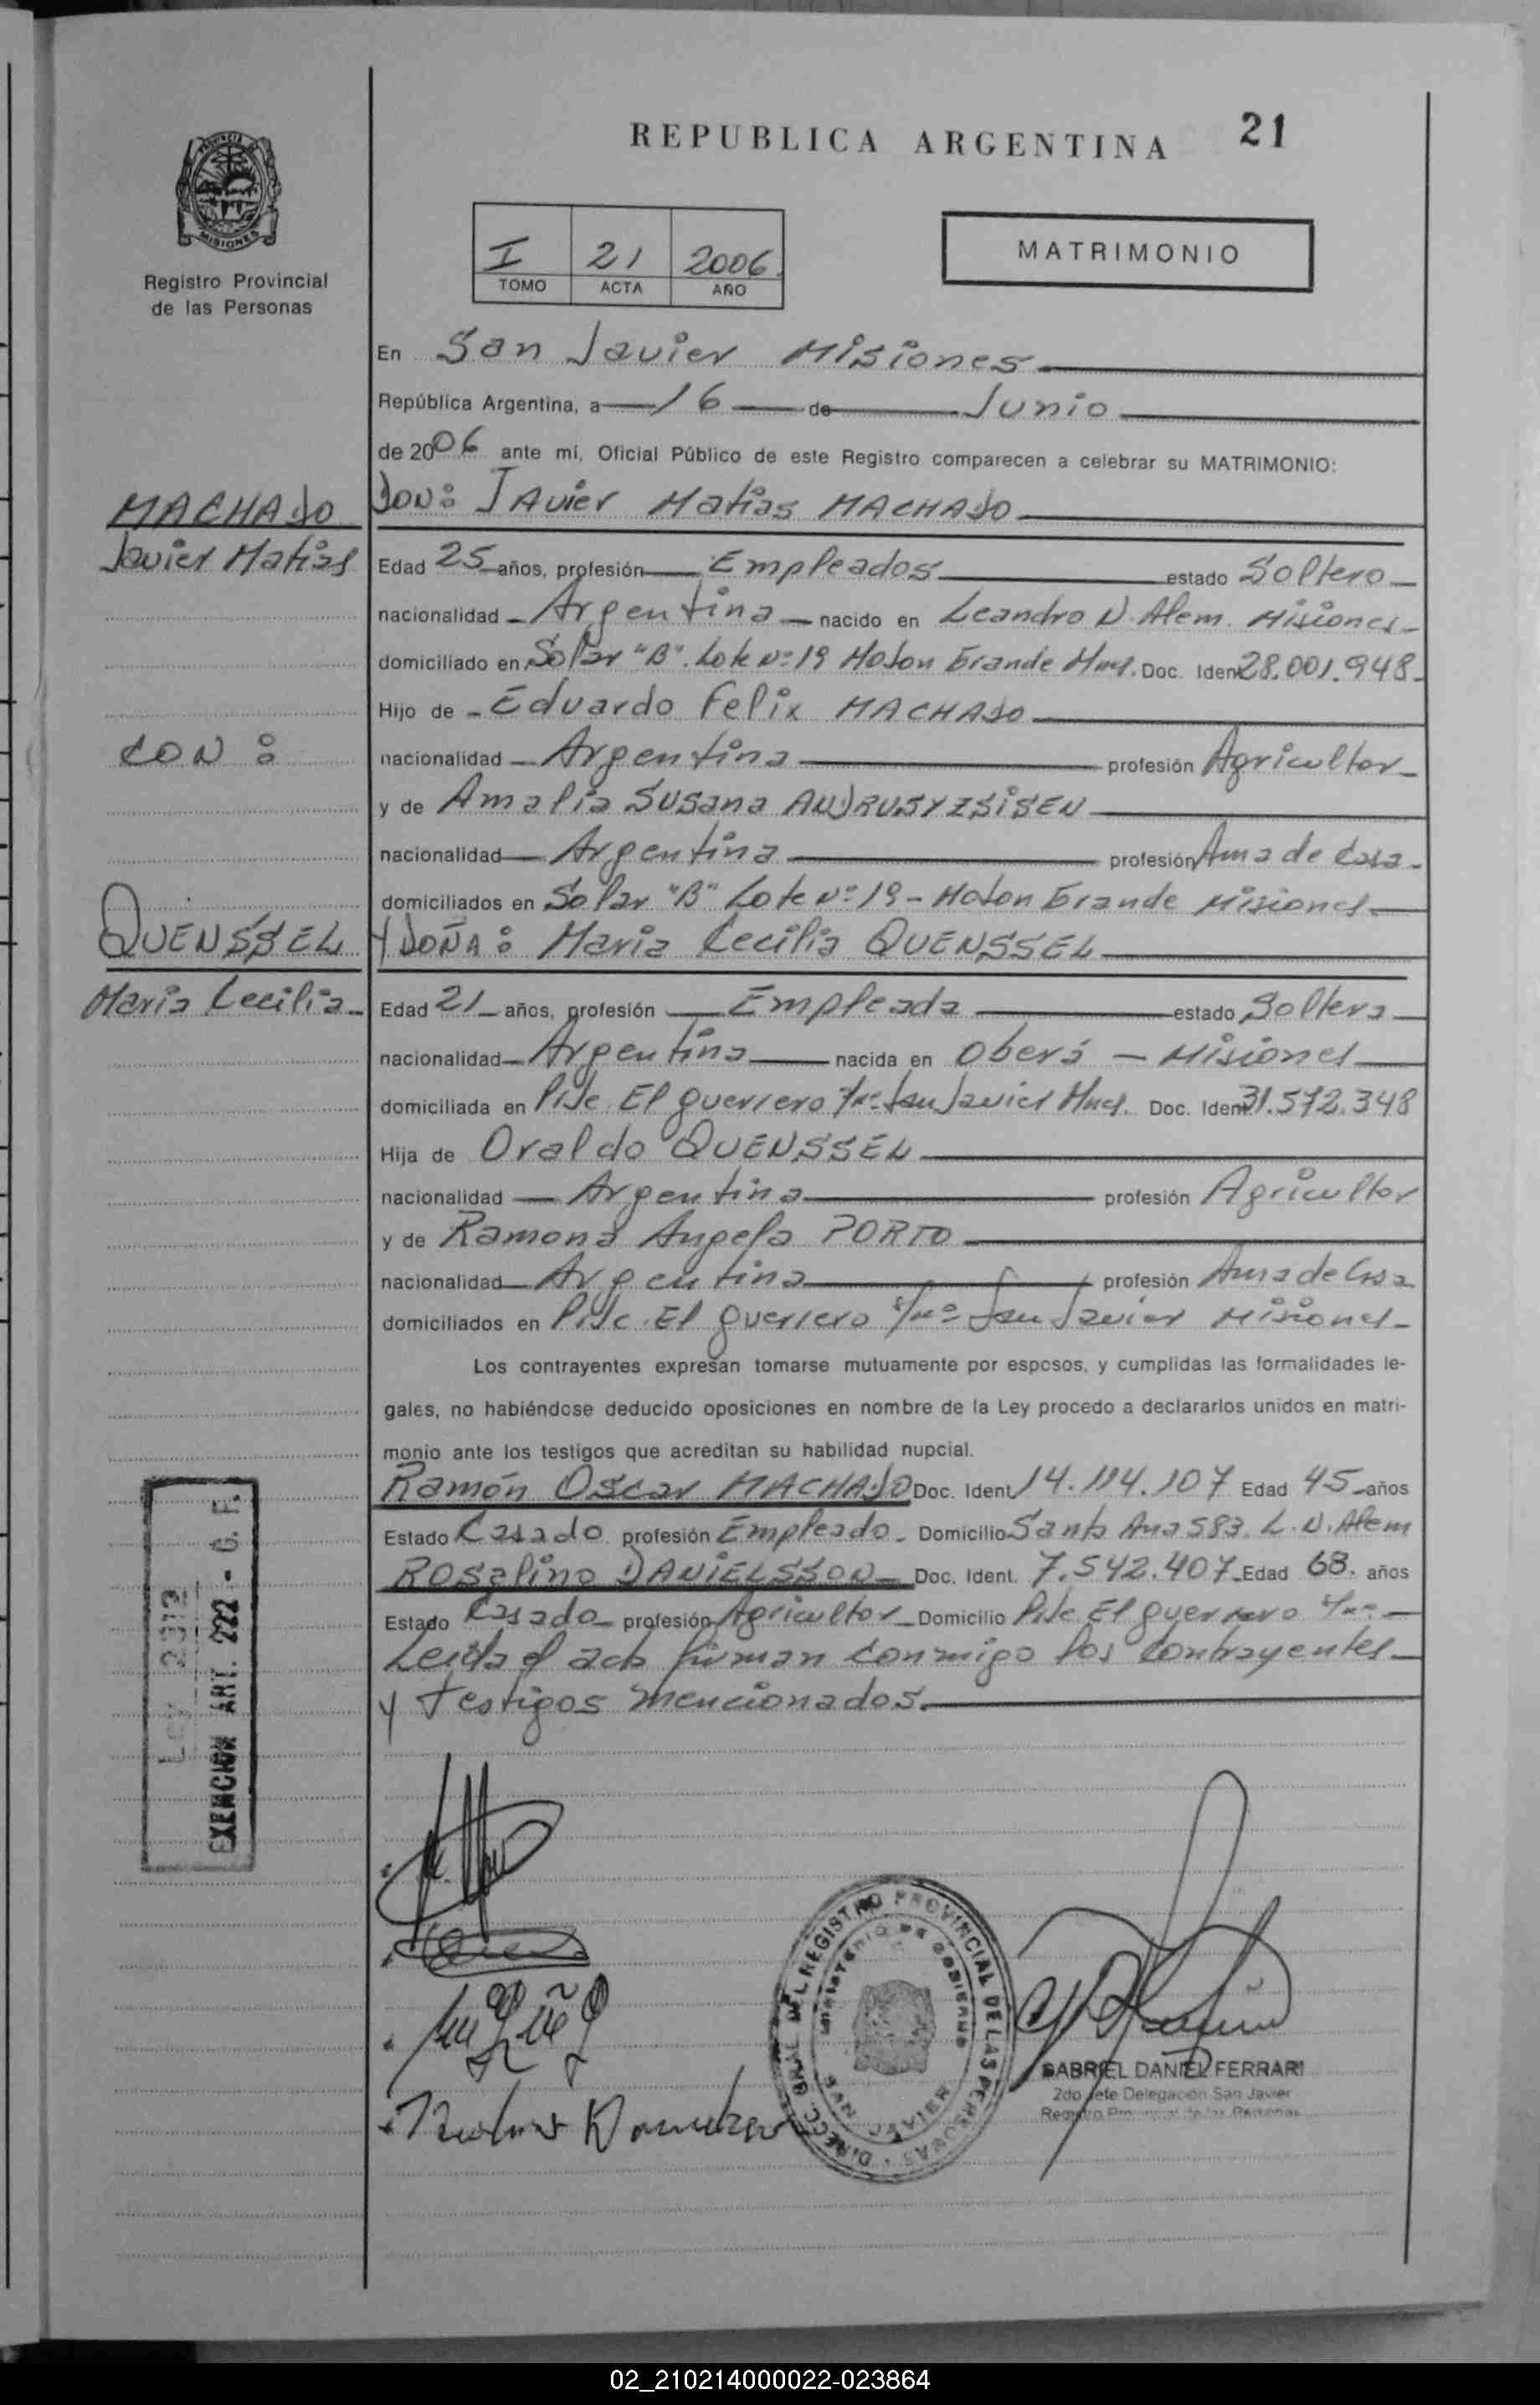 REPUBLICA ARGENTINA 21
PROVINCIA DE
MISIONES
Registro Provincial
de las Personas
I 21 2006
TOMO ACTA AÑO
MATRIMONIO
En San Javier Misiones
República Argentina, a 16 de Junio
de 2006 ante mí, Oficial Público de este Registro comparecen a celebrar su MATRIMONIO:
MACHADO
Javier Matias
DON: Javier Matias MACHADO
Edad 25 años, profesión Empleados estado Soltero
nacionalidad Argentina nacido en Leandro N. Alem. Misiones
domiciliado en Solar "B". Lote Nº 19 Mojon Grande Mnes. Doc. Ident 28.001.948
Hijo de Eduardo Felix MACHADO
CON :
nacionalidad Argentina profesión Agricultor
y de Amalia Susana ANDRUSYZSISEN
nacionalidad Argentina profesión Ama de Casa
domiciliados en Solar "B" Lote Nº 19 - Mojon Grande Misiones
QUENSSEL
Maria Cecilia
Y DOÑA : Maria Cecilia QUENSSEL
Edad 21 años, profesión Empleada estado Soltera
nacionalidad Argentina nacida en Oberá - Misiones
domiciliada en Pje. El guerrero San Javier Mnes. Doc. Ident 31.572.348
Hija de Oraldo QUENSSEL
nacionalidad Argentina profesión Agricultor
y de Ramona Angela PORTO
nacionalidad Argentina profesión Ama de Casa
domiciliados en Pje. El guerrero San Javier Misiones
Los contrayentes expresan tomarse mutuamente por esposos, y cumplidas las formalidades le-
gales, no habiéndose deducido oposiciones en nombre de la Ley procedo a declararlos unidos en matri-
monio ante los testigos que acreditan su habilidad nupcial.
Ramón Oscar MACHADO Doc. Ident 14.114.107 Edad 45 años
Estado Casado profesión Empleado Domicilio Santa Ana 583. L. N. Alem
Rosalino DANIELSSON Doc. Ident. 7.542.407 Edad 68. años
Estado Casado profesión Agricultor Domicilio Pje El guerrero
Leida el acta firman conmigo los Contrayentes
y testigos mencionados.
EXENCION ART. 222 - C. F.
DIRECC. GRAL. DEL REGISTRO PROVINCIAL DE LAS PERSONAS
MINISTERIO DE GOBIERNO
SAN JAVIER
GABRIEL DANIEL FERRARI
2do Jefe Delegación San Javier
Registro Provincial de las Personas
02_210214000022-023864